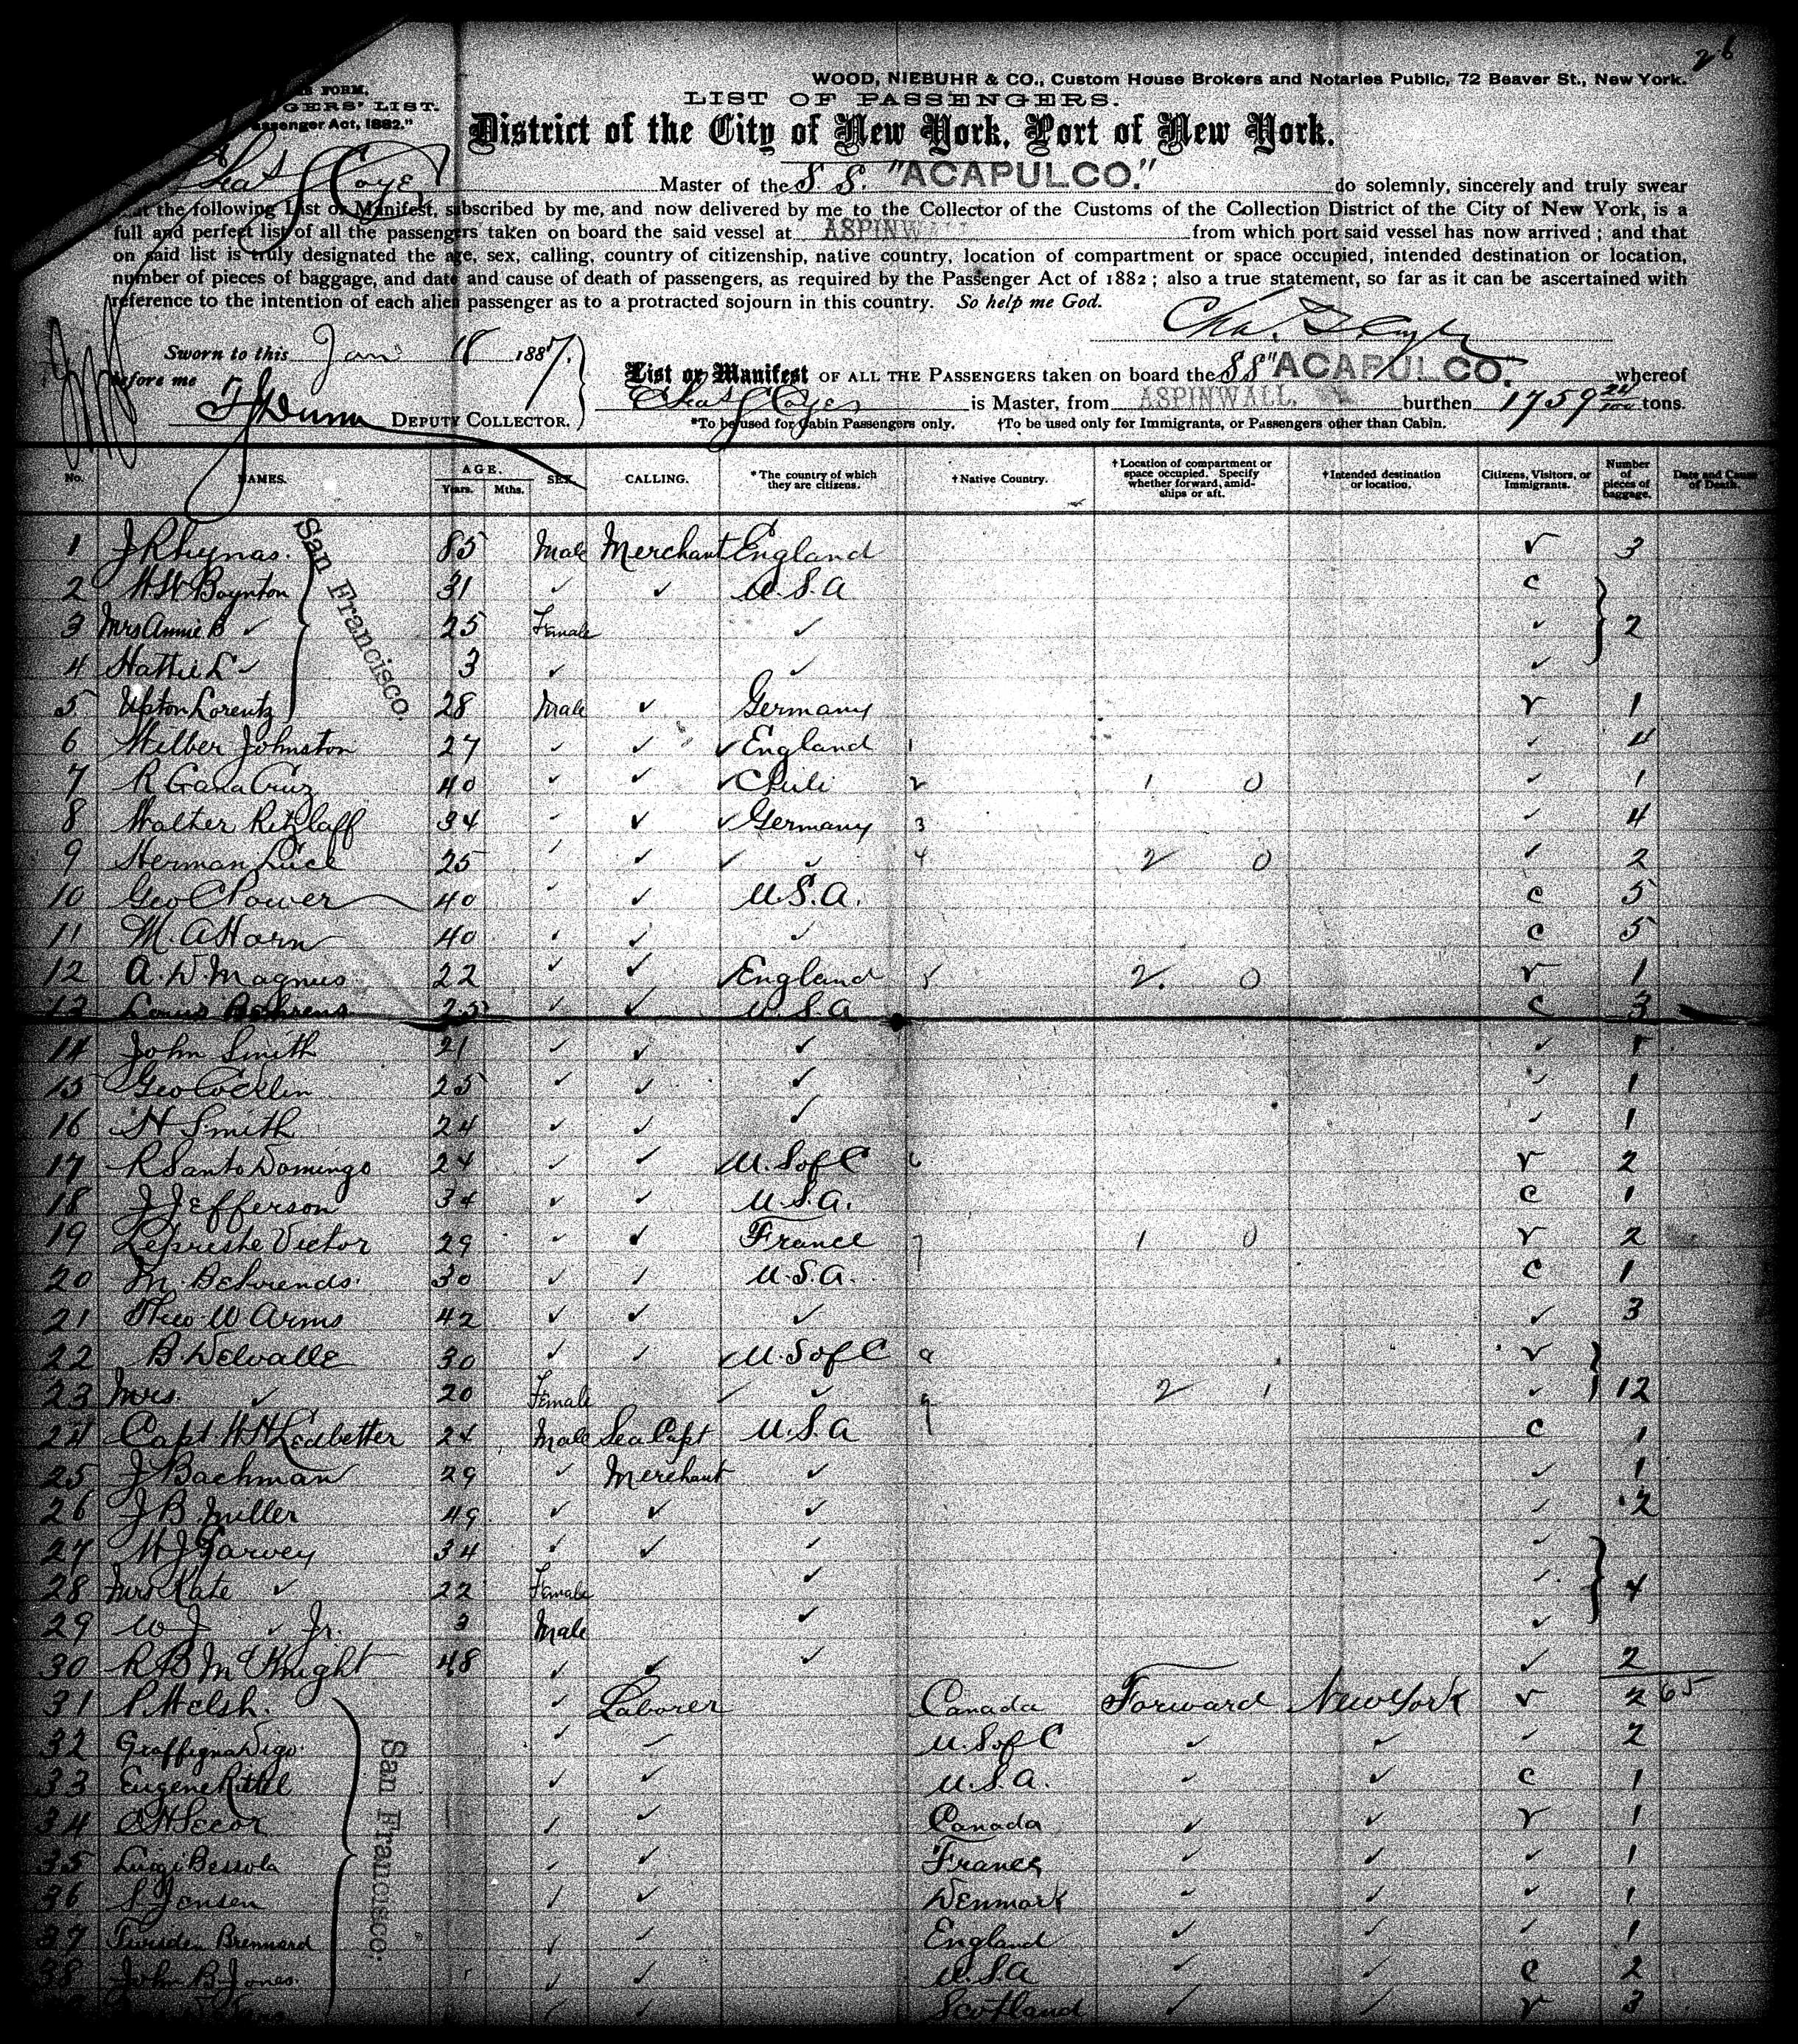 26
WOOD, NIEBUHR & CO., Custom House Brokers and Notaries Public, 72 Beaver St., New York.
FORM.
GERS' LIST.
Passenger Act, 1882."
LIST OF PASSENGERS.
District of the City of New York, Port of New York.
Master of the S S. "ACAPULCO." do solemnly, sincerely and truly swear
that the following List or Manifest, subscribed by me, and now delivered by me to the Collector of the Customs of the Collection District of the City of New York, is a
full and perfect list of all the passengers taken on board the said vessel at ASPINWALL from which port said vessel has now arrived; and that
on said list is truly designated the age, sex, calling, country of citizenship, native country, location of compartment or space occupied, intended destination or location,
number of pieces of baggage, and date and cause of death of passengers, as required by the Passenger Act of 1882; also a true statement, so far as it can be ascertained with
reference to the intention of each alien passenger as to a protracted sojourn in this country. So help me God.
Sworn to this Jan 18 1887.
before me
T J Dunn DEPUTY COLLECTOR.
List or Manifest OF ALL THE PASSENGERS taken on board the SS "ACAPULCO." whereof
is Master, from ASPINWALL. burthen 1759 tons.
*To be used for Cabin Passengers only. †To be used only for Immigrants, or Passengers other than Cabin.
No. NAMES. AGE. Years. Mths. SEX. CALLING. *The country of which they are citizens. †Native Country. †Location of compartment or space occupied. Specify whether forward, amidships or aft. †Intended destination or location. Citizens, Visitors, or Immigrants. Number of pieces of baggage. Date and Cause of Death.
San Francisco.
1 J Rhynas. 85 Male Merchant England V 3
2 H W Boynton 31 ✓ ✓ U.S.A C
3 Mrs Annie B ✓ 25 Female ✓ ✓ 2
4 Hattie L ✓ 3 ✓ ✓ ✓
5 Upton Lorentz 28 Male ✓ Germany V 1
6 Wilber Johnston 27 ✓ ✓ ✓ England 1 ✓ 4
7 R Gana Cruz 40 ✓ ✓ ✓ Chili 2 1 0 ✓ 1
8 Walter Ritzlaff 34 ✓ ✓ ✓ Germany 3 ✓ 4
9 Herman Luce 25 ✓ ✓ ✓ ✓ 4 2 0 ✓ 2
10 Geo C Power 40 ✓ ✓ U.S.A. C 5
11 M. A Horn 40 ✓ ✓ ✓ C 5
12 A. W. Magnus 22 ✓ ✓ ✓ England 5 2. 0 V 1
13 Louis Behrens 25 ✓ ✓ U.S.A C 3
14 John Smith 21 ✓ ✓ ✓ ✓ 1
15 Geo Cocklin 25 ✓ ✓ ✓ ✓ 1
16 H Smith 24 ✓ ✓ ✓ ✓ 1
17 R Santo Domingo 24 ✓ ✓ ✓ U.S of C 6 V 2
18 J Jefferson 34 ✓ ✓ U.S.A. C 1
19 Lepreshe Victor 29 ✓ ✓ France 7 1 0 V 2
20 M. Behrends. 30 ✓ ✓ U.S.A. C 1
21 Theo W Arms 42 ✓ ✓ ✓ ✓ 3
22 B Delvalle 30 ✓ ✓ ✓ U.S of C 8 V
23 Mrs. ✓ 20 Female ✓ ✓ 9 2 1 ✓ 12
24 Capt. H H Ledbetter 24 Male Sea Capt U.S.A C 1
25 J Bachman 29 ✓ Merchant ✓ ✓ 1
26 J B. Miller 49 ✓ ✓ ✓ ✓ 2
27 W J Garvey 34 ✓ ✓ ✓ ✓
28 Mrs Kate ✓ 22 Female ✓ ✓ 4
29 W J ✓ Jr. 3 Male ✓ ✓
30 R B McKnight 48 ✓ ✓ ✓ ✓ 2
31 P. Welsh. ✓ Laborer Canada Forward New York V 2 65
32 Graffigna Digo. ✓ ✓ U.S of C ✓ ✓ ✓ 2
33 Eugene Rittel ✓ ✓ U.S.A. ✓ ✓ C 1
34 C H Secor ✓ ✓ Canada ✓ ✓ V 1
35 Luigi Bessola ✓ ✓ France ✓ ✓ ✓ 1
36 S. Jensen ✓ ✓ Denmark ✓ ✓ ✓ 1
37 Twisden Brennard ✓ ✓ England ✓ ✓ ✓ 1
38 John B Jones. ✓ ✓ U.S.A ✓ ✓ C 2
✓ ✓ Scotland ✓ ✓ V 3
San Francisco.